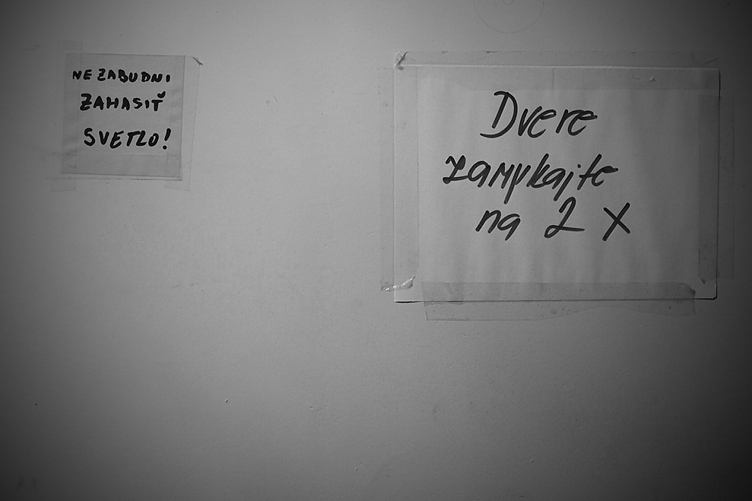 NEZABUDNI
ZAHASIŤ
SVETLO!
Dvere
zamykajte
na 2 X